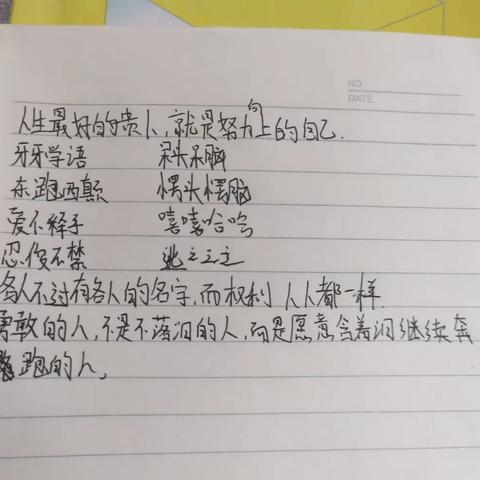 NO.
DATE
人生最好的贵人,就是努力向上的自己.
牙牙学语 呆头呆脑
东跑西颠 愣头愣脑
爱不释手 嘻嘻哈哈
忍俊不禁 逃之
名人不过有各人的名字,而权利人人都一样.
勇敢的人,不是不落泪的人,而是愿意含着泪继续奔
跑的人,